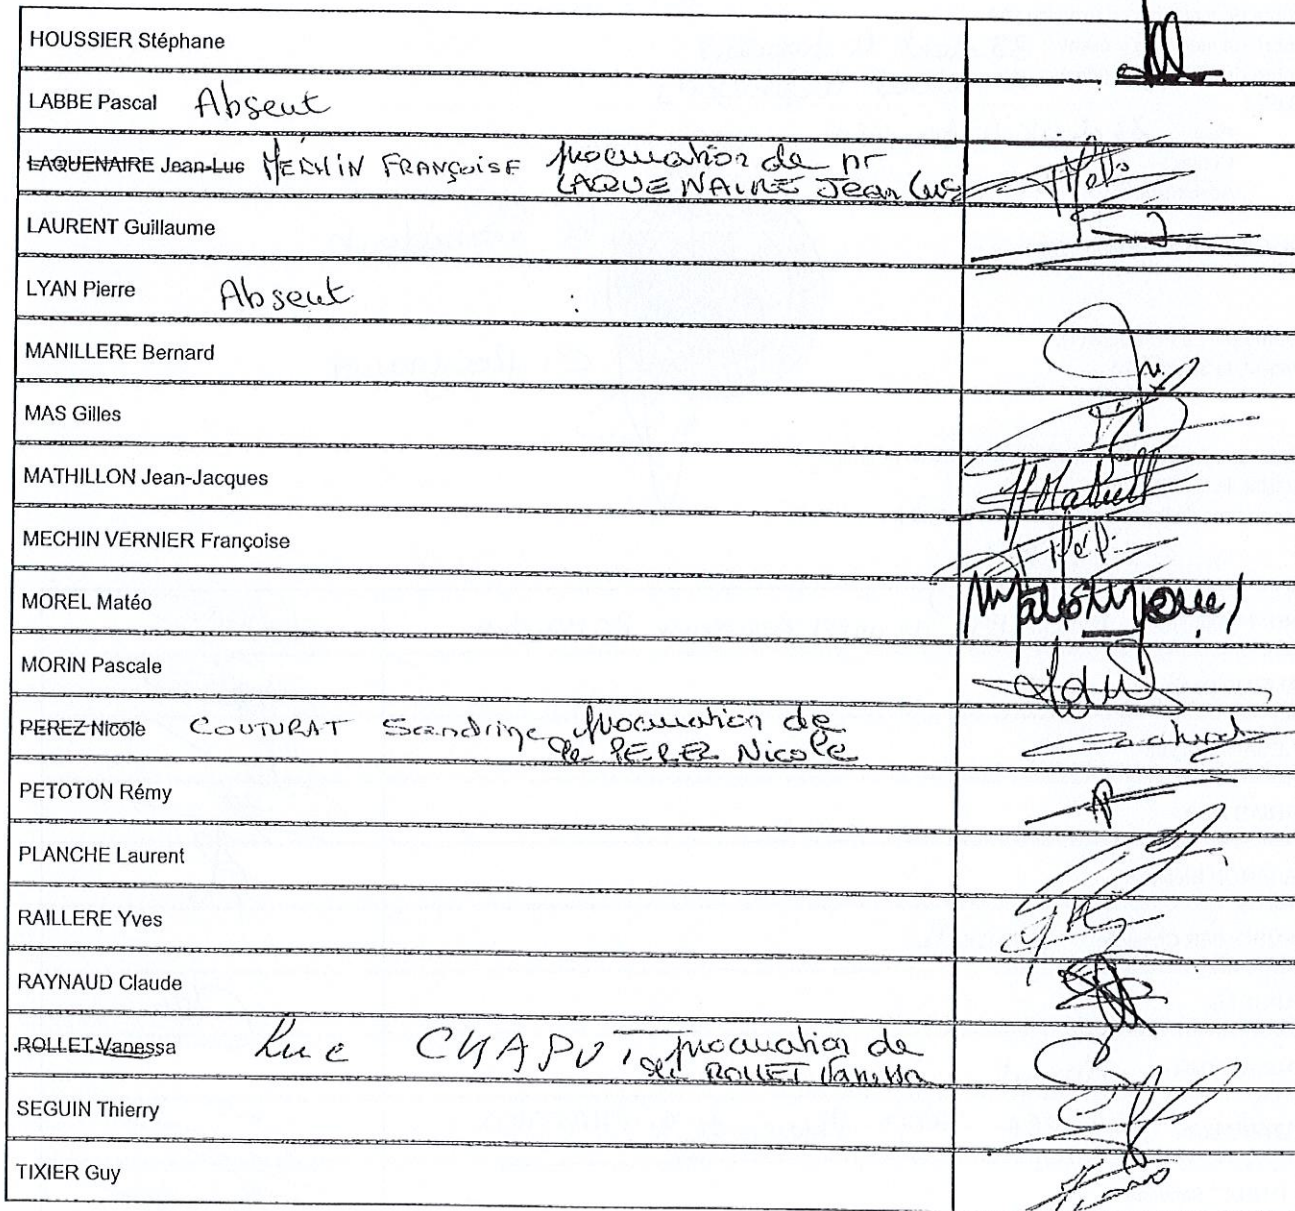 HOUSSIER Stéphane
LABBE Pascal Absent
LAQUENAIRE Jean-Luc FRANÇOISE procuration de mr
LAQUENAIRE Jean Luc
LAURENT Guillaume
LYAN Pierre Absent
MANILLERE Bernard
MAS Gilles
MATHILLON Jean-Jacques
MECHIN VERNIER Françoise
MOREL Matéo
MORIN Pascale
PEREZ Nicole COUTURAT Sandrine procuration de
PEREZ Nicole
PETOTON Rémy
PLANCHE Laurent
RAILLERE Yves
RAYNAUD Claude
ROLLET Vanessa Luc CHAPUT procuration de
ROLLET Vanessa
SEGUIN Thierry
TIXIER Guy